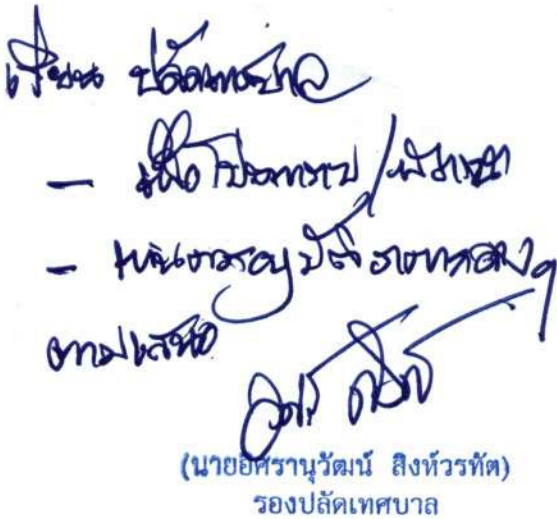 เรียน ปลัดเทศบาล
- เพื่อโปรดทราบ/พิจารณา
- เห็นควรอนุมัติ
ตามเสนอ
(นายอิศรานุวัฒน์ สิงห์วรทัต)
รองปลัดเทศบาล